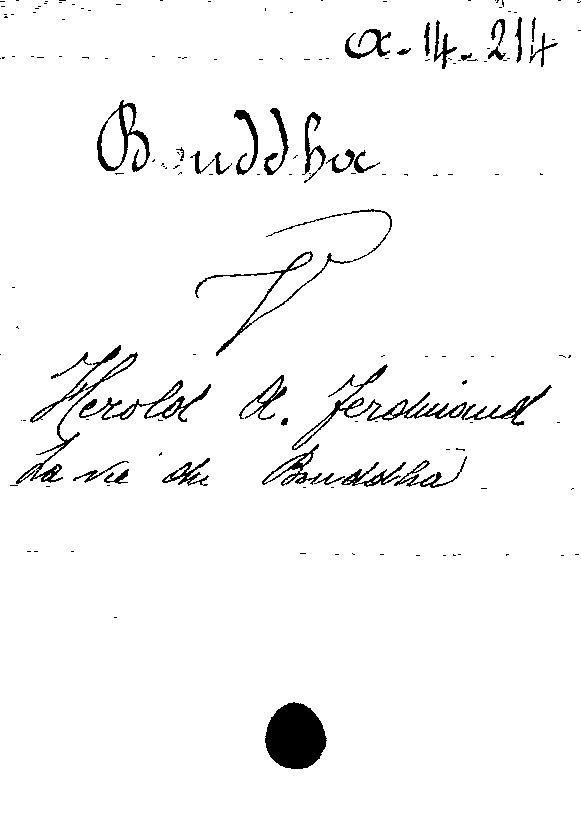 a-14-214
Bouddha
V
Herold A. Ferdinand
La vie du Bouddha